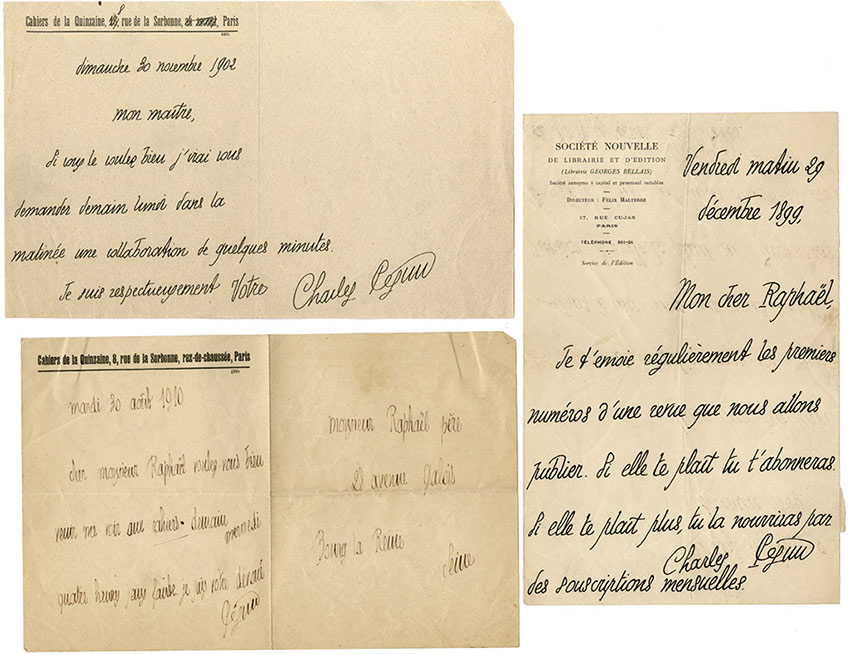 Cahiers de la Quinzaine, 8, rue de la Sorbonne, Paris
dimanche 30 novembre 1902
mon maître,
Si vous le voulez bien j'irai vous
demander demain lundi dans la
matinée une collaboration de quelques minutes.
Je suis respectueusement Votre
Charles Péguy
SOCIÉTÉ NOUVELLE
DE LIBRAIRIE ET D'ÉDITION
(Librairie GEORGES BELLAIS)
Société anonyme à capital et personnel variables
DIRECTEUR : FÉLIX MALTERRE
17, RUE CUJAS
PARIS
TÉLÉPHONE
Service de l'Édition
Vendredi matin 29
décembre 1899,
Mon cher Raphaël,
Je t'envoie régulièrement les premiers
numéros d'une revue que nous allons
publier. Si elle te plaît tu t'abonneras.
Si elle te plaît plus, tu la nourriras par
des souscriptions mensuelles.
Charles Péguy
Cahiers de la Quinzaine, 8, rue de la Sorbonne, rez-de-chaussée, Paris
mardi 30 août 1910
cher monsieur Raphaël voulez-vous bien
venir me voir aux cahiers demain mercredi
quatre heures je suis votre dévoué
Péguy
monsieur Raphaël père
avenue Galois
Bourg la Reine
Seine